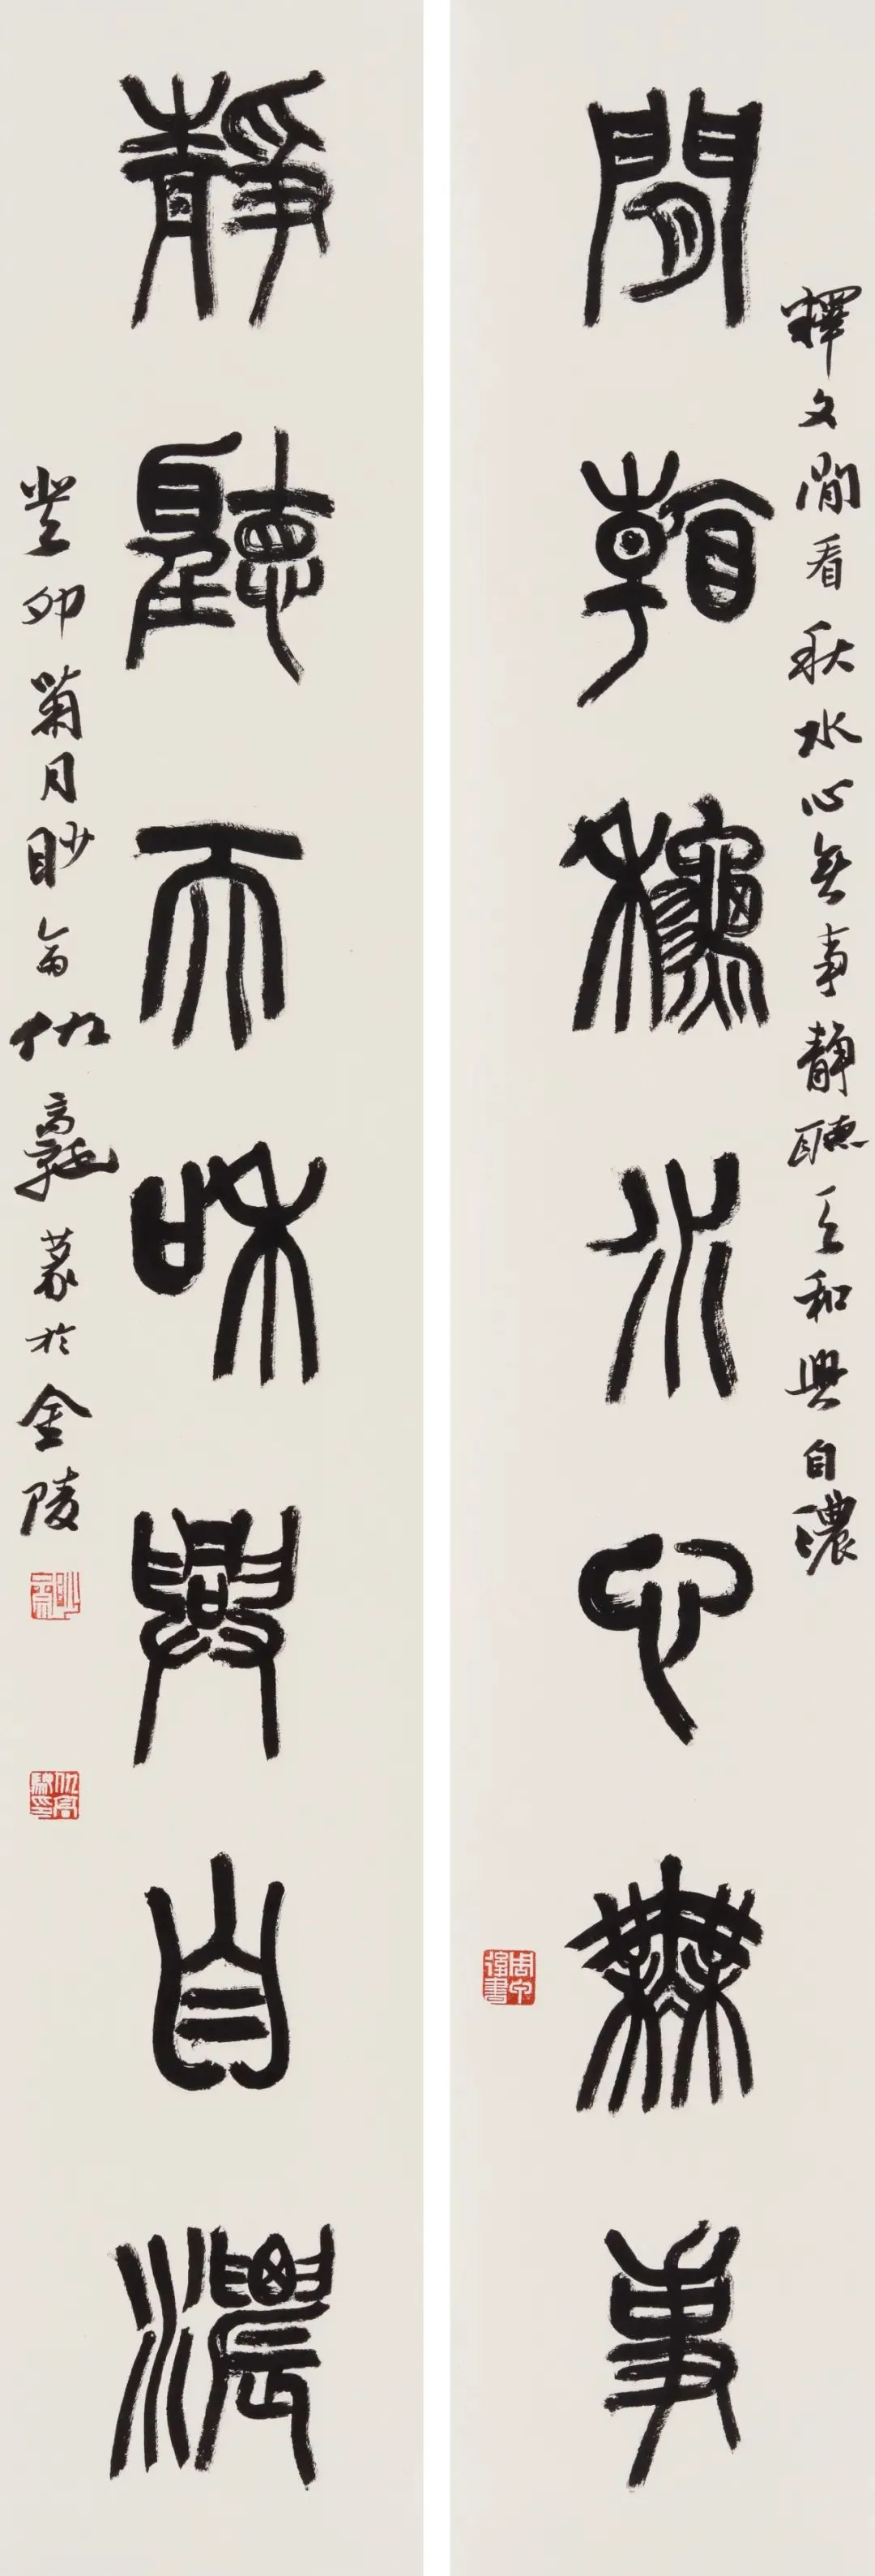 釋文閒看秋水心無事靜聽天和興自濃
閒看秋水心無事
靜聽天和興自濃
癸卯菊月眇斋仇高馳篆於金陵
仇高馳印